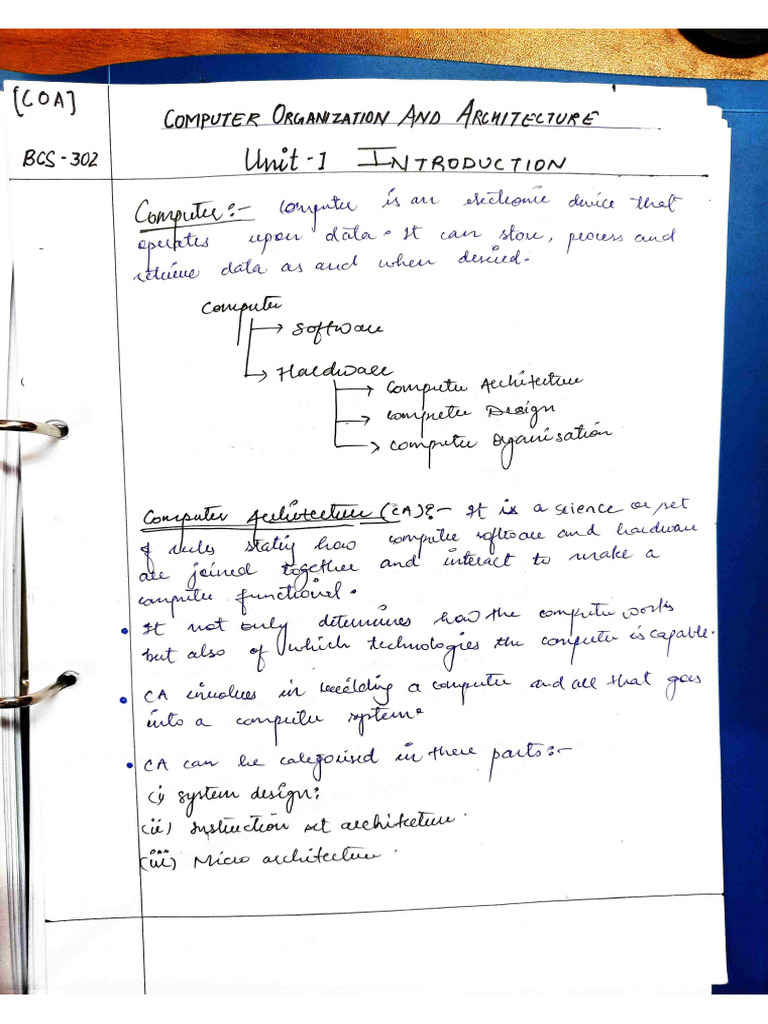 [COA]
COMPUTER ORGANIZATION AND ARCHITECTURE
BCS-302
Unit-1 INTRODUCTION
Computer:- Computer is an electronic device that
operates upon data. It can store, process and
retrieve data as and when desired.
Computer
Software
Hardware
Computer Architecture
Computer Design
Computer Organisation
Computer Architecture (CA):- It is a science or set
of rules stating how computer software and hardware
are joined together and interact to make a
computer functional.
• It not only determines how the computer works
but also of which technologies the computer is capable.
• CA involves in building a computer and all that goes
into a computer system.
• CA can be categorised in three parts:-
(i) System design:
(ii) Instruction set architecture.
(iii) Micro architecture.